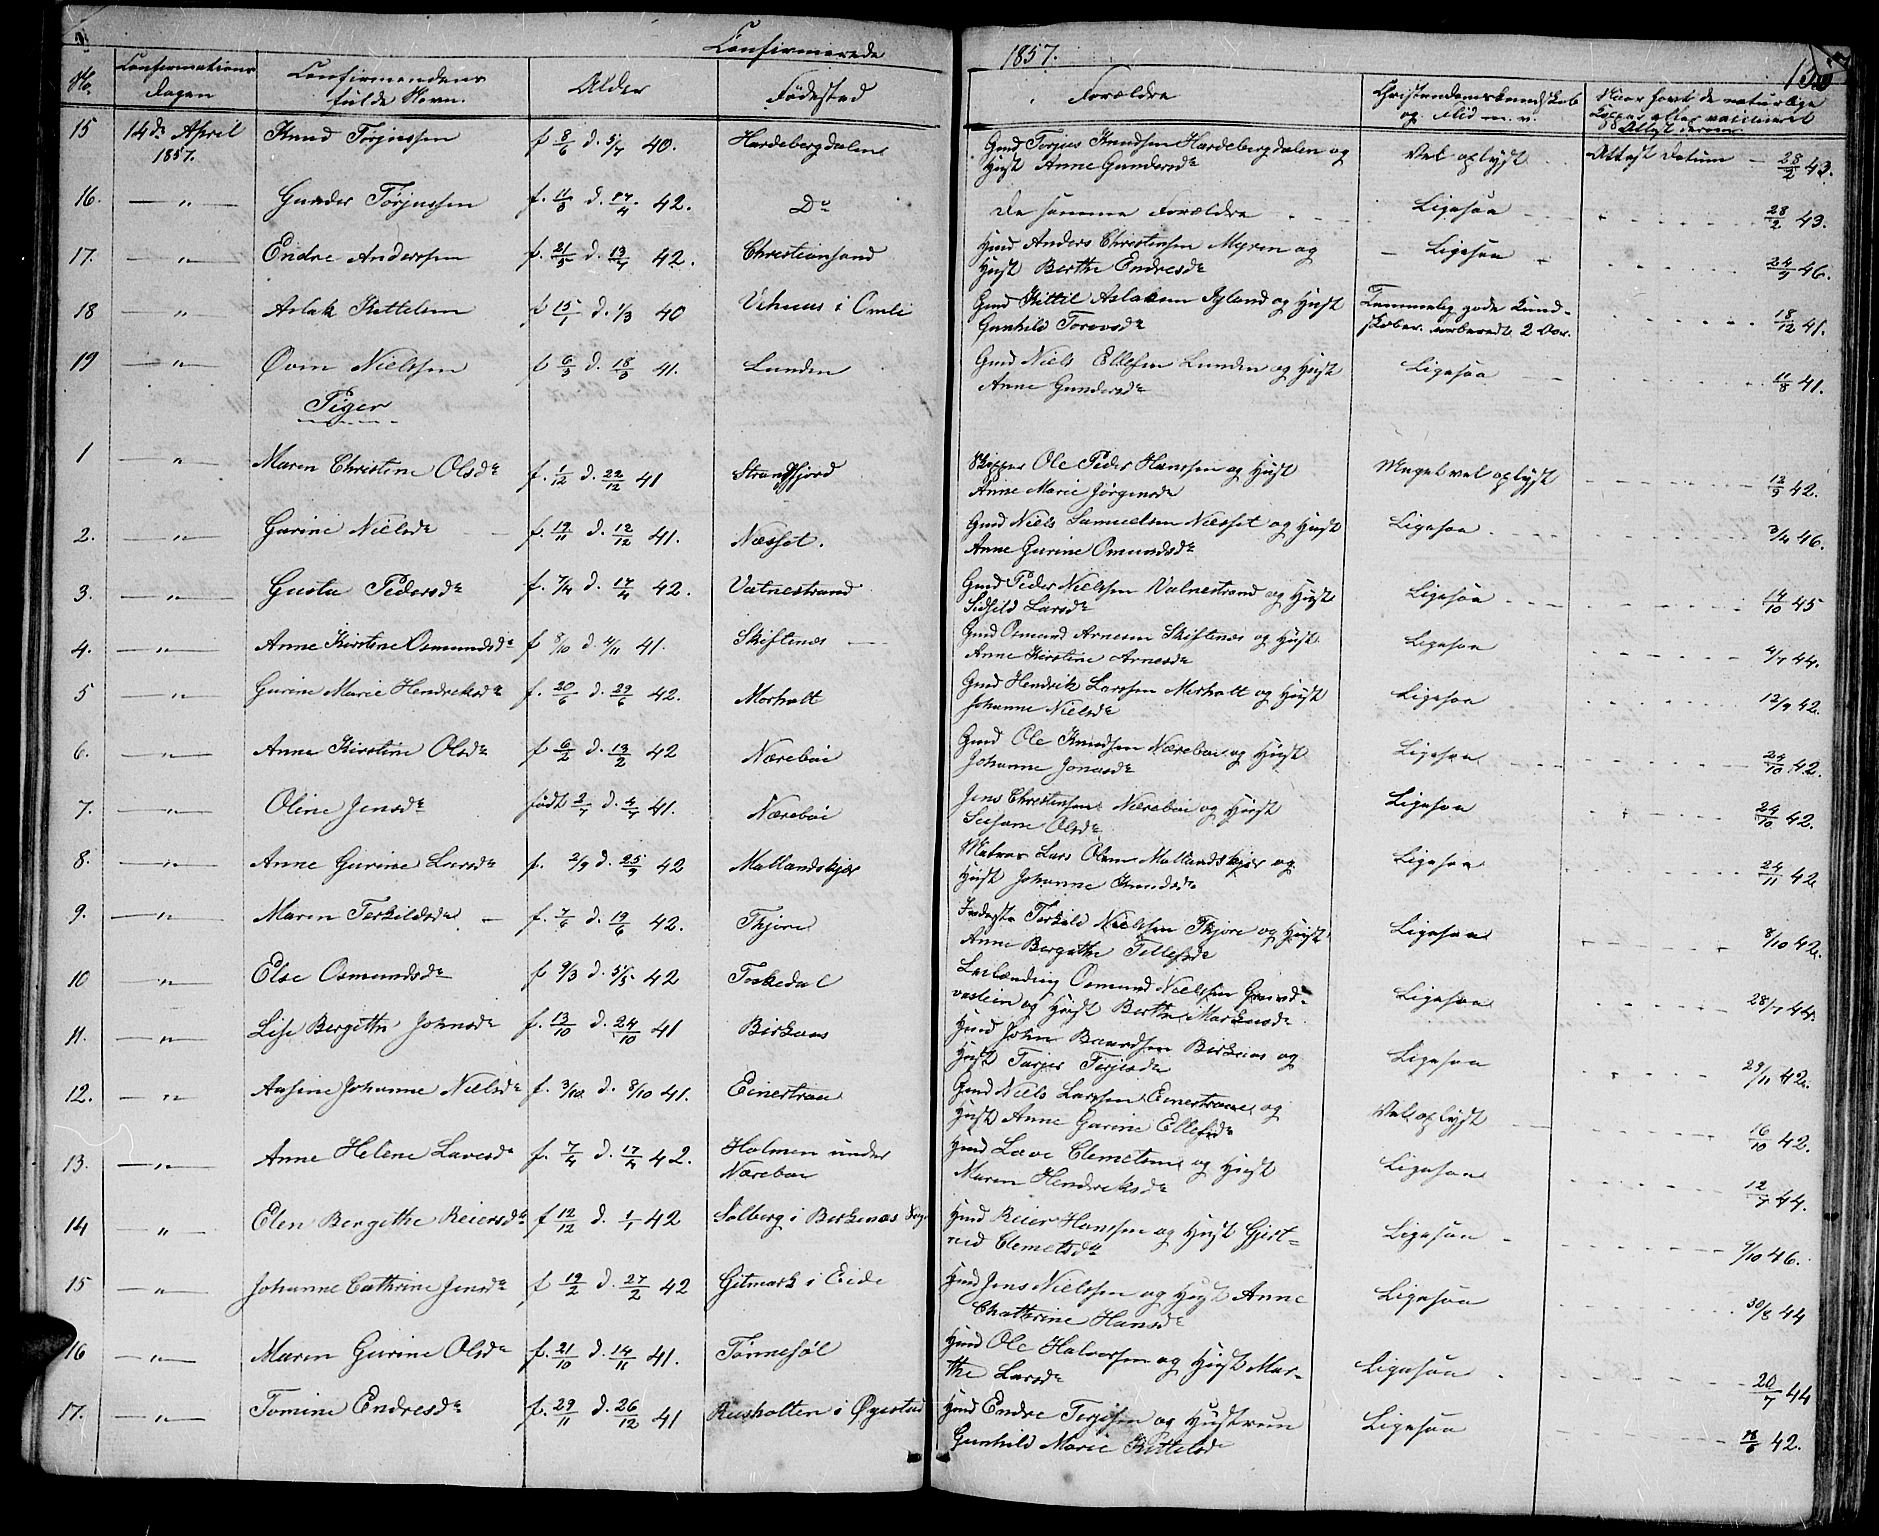 Confirmerede 1857.
No. Confirmations Dagen Confirmandens fulde Navn. Alder Fødested Forældre Christendomskundskab og Flid m. v. Naar havt de naturlige Kopper eller vaccineret
15 14de April 1857. Knud Torjussen f 8/6 d. 5/7 40. Hardebergdalen Gmd Torjus Knudsen Hardebergdalen og Hust Anne Gundersdr Vel oplyst Attest Datum 28/2 43.
16. — " — Gunder Torjussen f. 11/3 d. 17/4 42. Do De samme Forældre Ligesaa 28/2 43.
17. — " — Endre Anderssen f. 21/5 d. 13/7 42. Christiansand Hmd Anders Christensen Myren og Hust Berthe Endresdr Ligesaa 24/9 46.
18 — " — Aslak Kittelsen f 15/1 d. 1/3 40 Vehuus i Omli Gmd Kittil Aslaksen Ryland og Hust Gunhild Torevsdr Temmelig gode Kundskaber. forberedt 2 Aar. 18/12 41.
19 — " — Oven Nielssen f 6/3 d. 18/3 41. Lunden Gmd Niels Ellefsen Lunden og Hust Anne Gundersdr Ligesaa 11/8 41.
Piger
1 — " — Maren Christine Olsdr f. 1/12 d. 22/12 41 Strandfjord Skipper Ole Peder Hanssen og Hust Anne Marie Jørgensdr Meget vel oplyst 12/9 42.
2. — " — Gurine Nielsdr f. 19/11 d. 12/12 41. Næsset. Gmd Niels Samuelsen Næsset og Hust Anne Gurine Omundsdr Ligesaa 3/4 46.
3. — " — Gusta Pedersdr f. 7/4 d. 17/4 42. Vatnestrand Gmd Peder Nielssen Vatnestrand og Hust Sidsild Larsdr Ligesaa 14/10 45
4. — " — Anne Kirstine Osmundsdr f 8/10 d 4/11 41. Skiftenæs Gmd Osmund Arnesen Skiftenæs og Hust Anne Kirstine Arnesdr Ligesaa 4/7 44.
5 — " — Gurine Marie Hendriksdr f. 20/6 d. 29/6 42. Morholt Gmd Hendrik Larssen Morholt og Hust Johanne Nielsdr Ligesaa 12/9 42.
6. — " — Anne Kirstine Olsdr f. 6/2 d. 13/2 42 Nærebøe Gmd Ole Knudsen Nærebøe og Hust Johanne Jonasdr Ligesaa 24/10 42.
7. — " — Oline Jensdr født 2/7 d. 4/7 41. Nærebøe Jens Christensen Nærebøe og Hust Susane Olsdr Ligesaa 24/10 42.
8. — " — Anne Gurine Larsdr f. 2/9 d. 25/9 42 Mallandskjær Matros Lars Olsen Mallandskjær og Hust Johanne Knudsdr Ligesaa 24/11 42
9. — " — Maren Terkildsdr f. 7/6 d. 19/6 42. Thjore Inderste Terkild Nielssen Thjore og Hust Anne Bergithe Tellefsdr Ligesaa 8/10 42.
10 — " — Else Osmundsdr f 9/3 d. 5/5 42 Toskedal Leilænding Osmund Nielssen Grundvastein og Hust Berthe Markusdr Ligesaa 28/7 44.
11. — " — Lise Bergithe Johnsdr f. 13/10 d. 24/10 41 Birkenes Hmd John Baardsen Birkenes og Hust Torjer Terjesdr Ligesaa 29/11 42.
12. — " — Aasine Johanne Nielsdr f. 3/10 d. 8/10 41. Einerstran Gmd Niels Larssen Einerstrane og Hust Anne Gurine Ellefsdr Vel oplyst 16/10 42.
13. — " — Anne Helene Lavesdr f. 7/4 d. 17/4 42. Holmen under Nærebøe Hmd Lave Clemetsen og Hust Maren Hendriksdr Ligesaa 12/7 44.
14 — " — Elen Bergithe Reiersdr f 12/12 d. 1/1 42 Solberg i Birkenæs Sogn Hmd Reier Hanssen og Hust Gjertrud Clemetsdr Ligesaa 9/10 46.
15 — " — Johanne Cathrine Jensdr f 19/2 d. 27/2 42 Gitmark i Eide Hmd Jens Nielssen og Hust Anne Chathrine Hansdr Ligesaa 30/8 44
16 — " — Maren Gurine Olsdr f. 21/10 d. 14/11 41. Tønnesøl Hmd Ole Halvorsen og Hust Marthe Larsdr Ligesaa 20/7 44
17. — " — Tomine Endresdr f. 29/11 d. 26/12 41 Rusholten i Øyestad Hmd Endre Terjesen og Hustruen Gunhild Marie Kittelsdr Ligesaa 18/6 42.